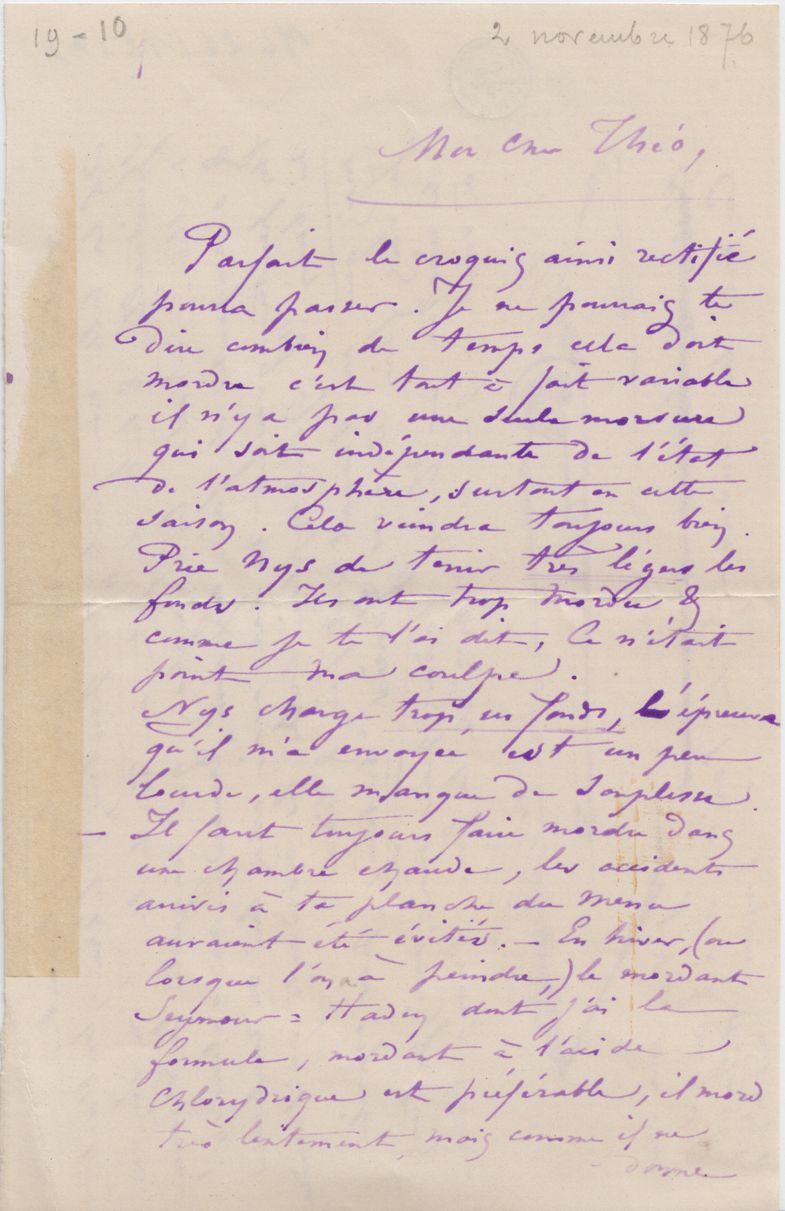 19-10
2 novembre 1876
Mon cher Théo,
Parfait le croquis ainsi rectifié
pourra passer. Je ne pourrais te
dire combien de temps cela doit
mordre c'est tout à fait variable
il n'y a pas une seule morsure
qui soit indépendante de l'état
de l'atmosphère, surtout en cette
saison. Cela viendra toujours bien.
Prie Nys de tenir très légers les
fonds. Ils ont trop mordu &
comme je te l'ai dit, ce n'était
point ma coulpe.
Nys charge trop ses fonds, L'épreuve
qu'il m'a envoyée est un peu
lourde, elle manque de souplesse.
– Il faut toujours faire mordre dans
une chambre chaude, les accidents
arrivés à ta planche du Menu
auraient été évités. – En hiver, (ou
lorsque l'on a à peindre,) le mordant
Seymour = Haden dont j'ai la
formule, mordant à l'acide
chlorydrique est préférable, il mord
très lentement, mais comme il ne
donne